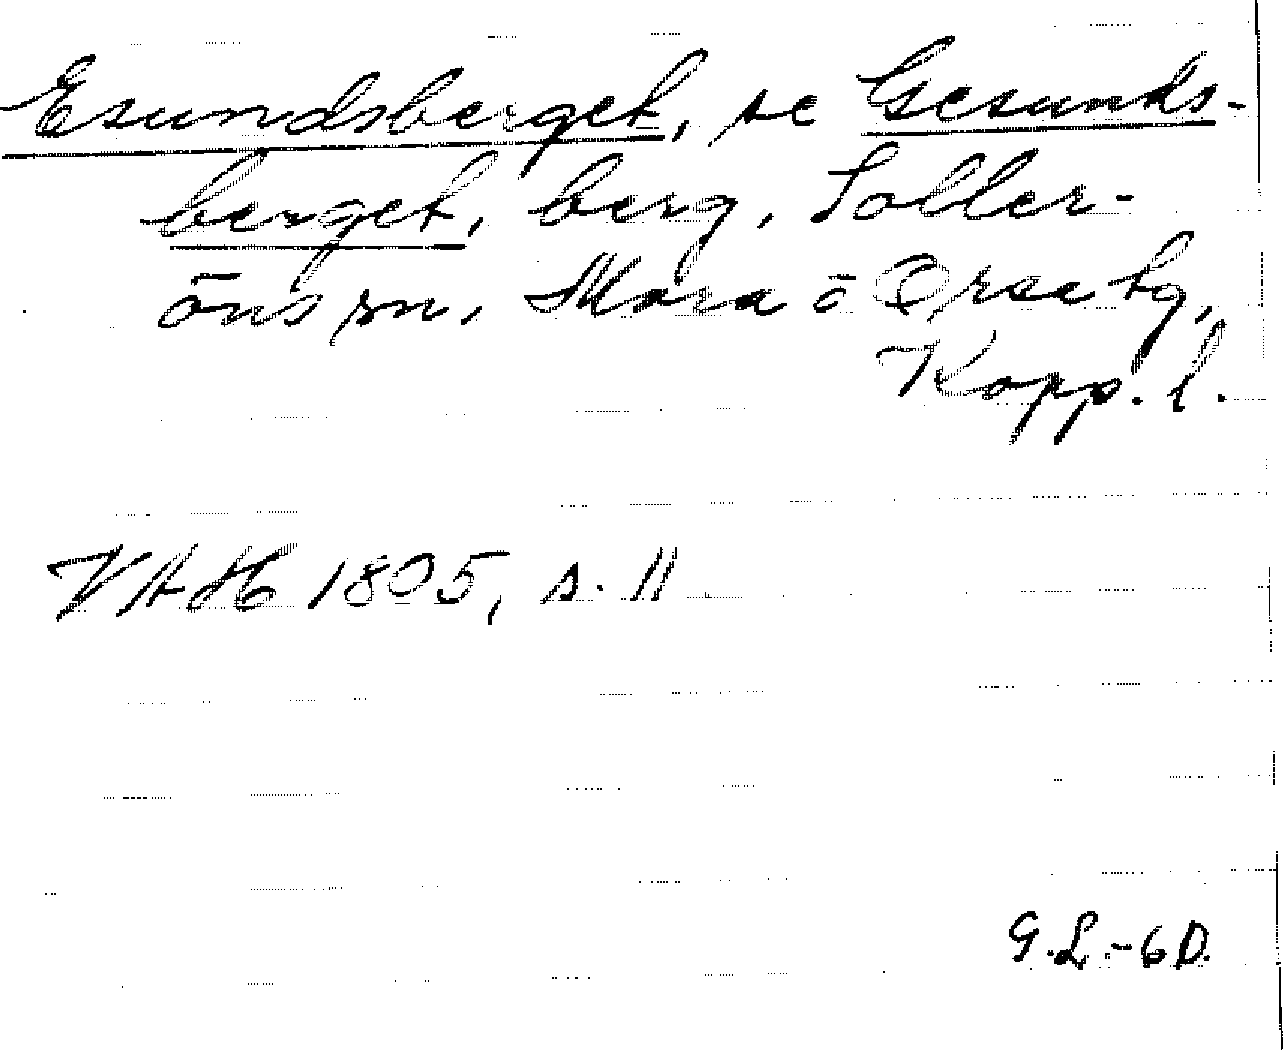 Esundsberget, se Gesunds-
berget, berg, Soller-
öns sn, Mora o Orsa tg,
Kopp. l.
VAH 1805, s. 11
G.L.-6D.